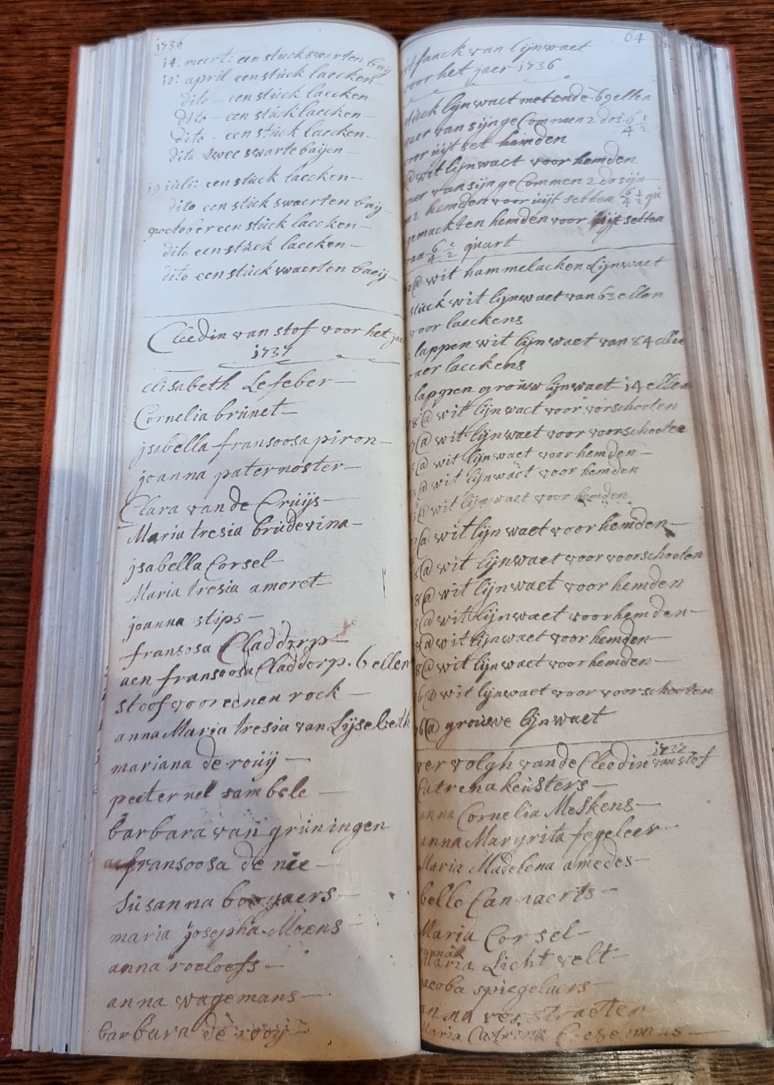 1736
14: meert: een stuck swarten baij
12: april een stuck laecken
dito – een stuck laecken
dito – een stuck laecken –
dito – een stuck laecken –
dito twee swarte baijen –
julij een stuck laecken –
dito een stuck swaerten baij
october een stuck laecken –
dito een stuck laecken –
dito een stuck swaerten baeij –
Cleedin van stof voor het
1737
elisabeth Lefeber –
Cornelia brunet –
jsabella fransoosa piron –
joanna paternoster –
Clara van de Cruijs –
Maria tresia brudevina –
jsabella Corsel –
Maria tresia amoret –
joanna stips –
fransosa Cladderp –
aen fransoosa Cladderp. 6 ellen
stoof voor eenen rock –
anna Maria tresia van Lijselbeth
mariana de rouij –
peeternel sambele –
barbara van gruningen
fransoosa de nie –
Susanna boogaers –
maria josepha Moens –
anna roeloefs –
anna wagemans –
barbara de rooij –
64
van lijnwaet
voor het jaer 1736
stuck lijnwaet met ende 69 ellen
van sijn geCommen 2 dos 6/4 1/2
uijt set hemden
@ wit lijnwaet voor hemden
van sijn geCommen 2 dosijn
hemden voor uijt setten 6/4 1/2
gemackten hemden voor uijt setten
van 6/4 1/2 quart
@ wit hammelacken Lijnwaet
stuck wit lijnwaet van 63 ellen
voor laeckens
lappen wit lijnwaet van 84 ellen
laeckens
lappen grouw lijnwaet 14 ellen
@ wit lijnwaet voor vorschooten
@ wit lijnwaet voor vorrschooten
@ wit lijnwaet voor hemden –
@ wit lijnwaet voor hemden
@ wit lijnwaet voor hemden
@ wit lijn waet voor hemden –
@ wit lijnwaet voor voorschooten
@ wit lijnwaet voor hemden
@ wit lijnwaet voor hemden –
@ wit lijnwaet voor hemden –
@ wit lijnwaet voor hemden –
@ wit lijnwaet voor voorschooten
@ grouwe lijnwaet
vervolgh vande Cleedin van stof
1737
Catrena keusters –
anna Cornelia Meskens –
anna Margrita fegeleer –
Maria Madelena amedes –
Cannaerts –
Maria Corsel –
Maria Licht velt –
jacoba spiegelaers –
anna ver straeten
Maria Catrina